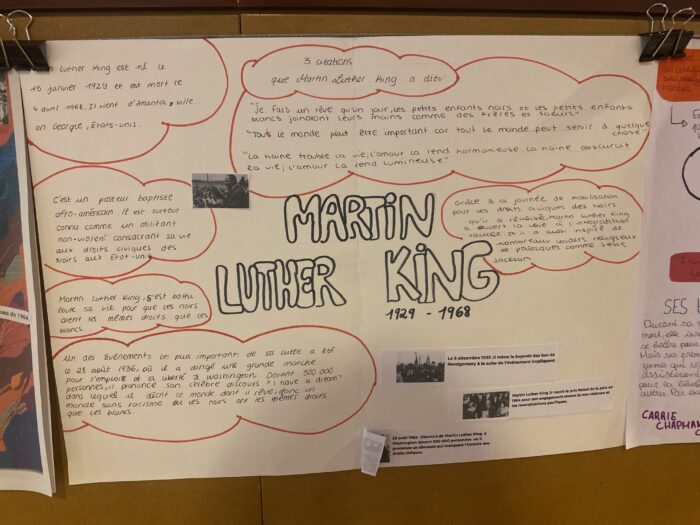 Luther King est né le
15 janvier 1929 et est mort le
4 avril 1968. Il vient d'Atlanta, ville
en Georgie, États-unis.
3 citations
que Martin Luther King a dite!
"Je fais un rêve qu'un jour, les petits enfants noirs et les petits enfants
blancs joindront leurs mains comme des frères et soeurs"
"Tous le monde peut être important car tout le monde peut servir à quelque
chose"
"La haine trouble la vie; l'amour la rend harmonieuse. La haine obscurcit
la vie; l'amour la rend lumineuse"
C'est un pasteur baptiste
afro-américain. Il est surtout
connu comme un militant
non-violent consactant sa vie
aux droits civiques des
Noirs aux Etat-unis
Martin Luther King, s'est battu
toute sa vie pour que les noirs
aient les mêmes droits que les
blancs
MARTIN
LUTHER KING
1929 - 1968
Grâce à la journée de mobilisation
pour les droits civiques des Noirs
qu'il a réalisé, Martin Luther King
a ouvert la voie à l'intégration
raciale et il a aussi inspiré de
nombreux leaders religieux
et politiques comme Jesse
Jackson
Un des événements les plus importants de sa lutte a été
le 28 août 1936, où il a dirigé une grande marche
pour l'emploi et la liberté à Washington. Devant 300 000
personnes, il prononça son célèbre discours "I have a dream"
dans lequel il décrit le monde dont il rêve, donc un
monde sans racisme où les noirs ont les mêmes droits
que les blancs.
Le 5 décembre 1955, il mène le boycott des bus de
Montgomery à la suite de l'événement impliquant
Martin Luther King Jr reçoit le prix Nobel de la paix en
1964 pour son engagement envers la non violence et
les revendications pacifiques.
28 août 1963 : Discours de Martin Luther King à
Washington devant 300 000 personnes où il
prononce un discours qui marquera l'histoire des
droits civiques
de 1964
SES
CARRIE